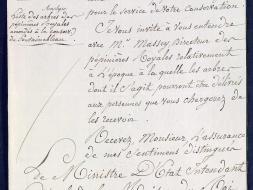 pour le service de votre conservation.
Je vous invite à vous entendre
avec M. Massey Directeur des
pépinières Royales relativement
à l'époque à la quelle les arbres
dont il s'agit pourront être délivrés
aux personnes que vous chargerez de
les recevoir.
Analyse
Liste des arbres des
pépinières Royales
accordés à la
de Fontainebleau
Recevez, Monsieur l'assurance
de mes sentimens distingués
Le Ministre d'Etat Intendant